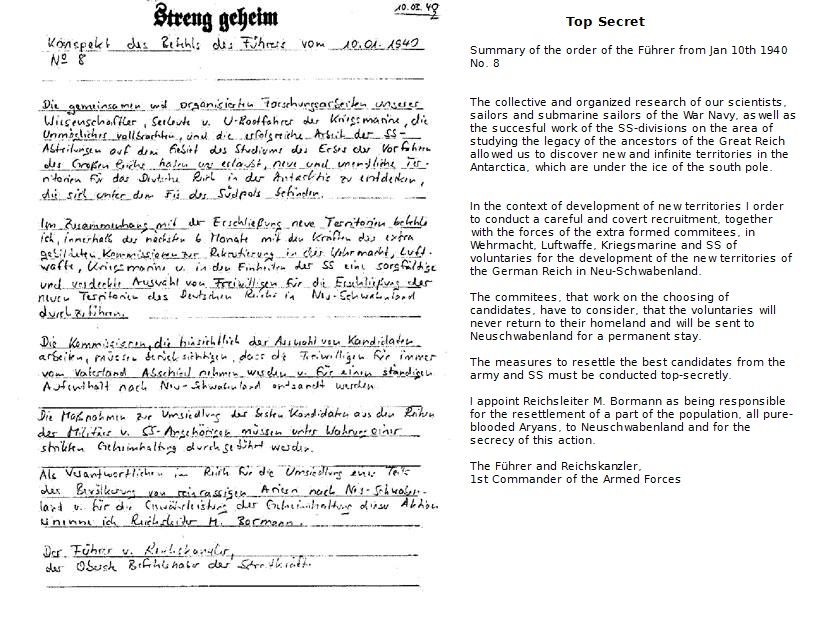 Streng geheim
10.02.42
Konspekt des Befehls des Führers vom 10.01.1940
Nº 8
Die gemeinsamen und organisierten Forschungsarbeiten unserer
Wissenschaftler, Seeleute u. U-Bootfahrer der Kriegsmarine, die
Unmögliches vollbrachten, und die erfolgreiche Arbeit der SS-
Abteilungen auf dem Gebiet des Studiums des Erbes der Vorfahren
des Großen Reichs haben uns erlaubt, neue und unendliche Ter-
ritorien für das Deutsche Reich in der Antarctis zu entdecken,
die sich unter dem Eis des Südpols befinden.
Im Zusammenhang mit der Erschließung neue Territorien befehle
ich, innerhalb des nächsten 6 Monate mit den Kräften des extra
gebildeten Kommissionen zur Rekrutierung in der Wehrmacht, Luft-
waffe, Kriegsmarine u. in den Einheiten der SS eine sorgfältige
und verdeckte Auswahl von Freiwilligen für die Erschließung der
neuen Territorien des Deutschen Reichs in Neu-Schwabenland
durchzuführen.
Die Kommissionen, die hinsichtlich der Auswahl von Kandidaten
arbeiten, müssen berücksichtigen, dass die Freiwilligen für immer
vom Vaterland Abschied nehmen werden u. für einen ständigen
Aufenthalt nach Neu-Schwabenland entsandt werden.
Die Maßnahmen zur Umsiedlung der besten Kandidaten aus den Reihen
des Militärs u. SS-Angehörigen müssen unter Wahrung einer
strikten Geheimhaltung durchgeführt werden.
Als Verantwortlichen im Reich für die Umsiedlung eines Teils
der Bevölkerung von reinrassigen Ariern nach Neu-Schwaben-
land u. für die Gewährleistung der Geheimhaltung dieser Aktion
ernenne ich Reichsleiter M. Bormann.
Der Führer u. Reichskanzler,
der Oberste Befehlshaber der Streitkräft.
Top Secret
Summary of the order of the Führer from Jan 10th 1940
No. 8
The collective and organized research of our scientists,
sailors and submarine sailors of the War Navy, as well as
the succesful work of the SS-divisions on the area of
studying the legacy of the ancestors of the Great Reich
allowed us to discover new and infinite territories in the
Antarctica, which are under the ice of the south pole.
In the context of development of new territories I order
to conduct a careful and covert recruitment, together
with the forces of the extra formed commitees, in
Wehrmacht, Luftwaffe, Kriegsmarine and SS of
voluntaries for the development of the new territories of
the German Reich in Neu-Schwabenland.
The commitees, that work on the choosing of
candidates, have to consider, that the voluntaries will
never return to their homeland and will be sent to
Neuschwabenland for a permanent stay.
The measures to resettle the best candidates from the
army and SS must be conducted top-secretly.
I appoint Reichsleiter M. Bormann as being responsible
for the resettlement of a part of the population, all pure-
blooded Aryans, to Neuschwabenland and for the
secrecy of this action.
The Führer and Reichskanzler,
1st Commander of the Armed Forces